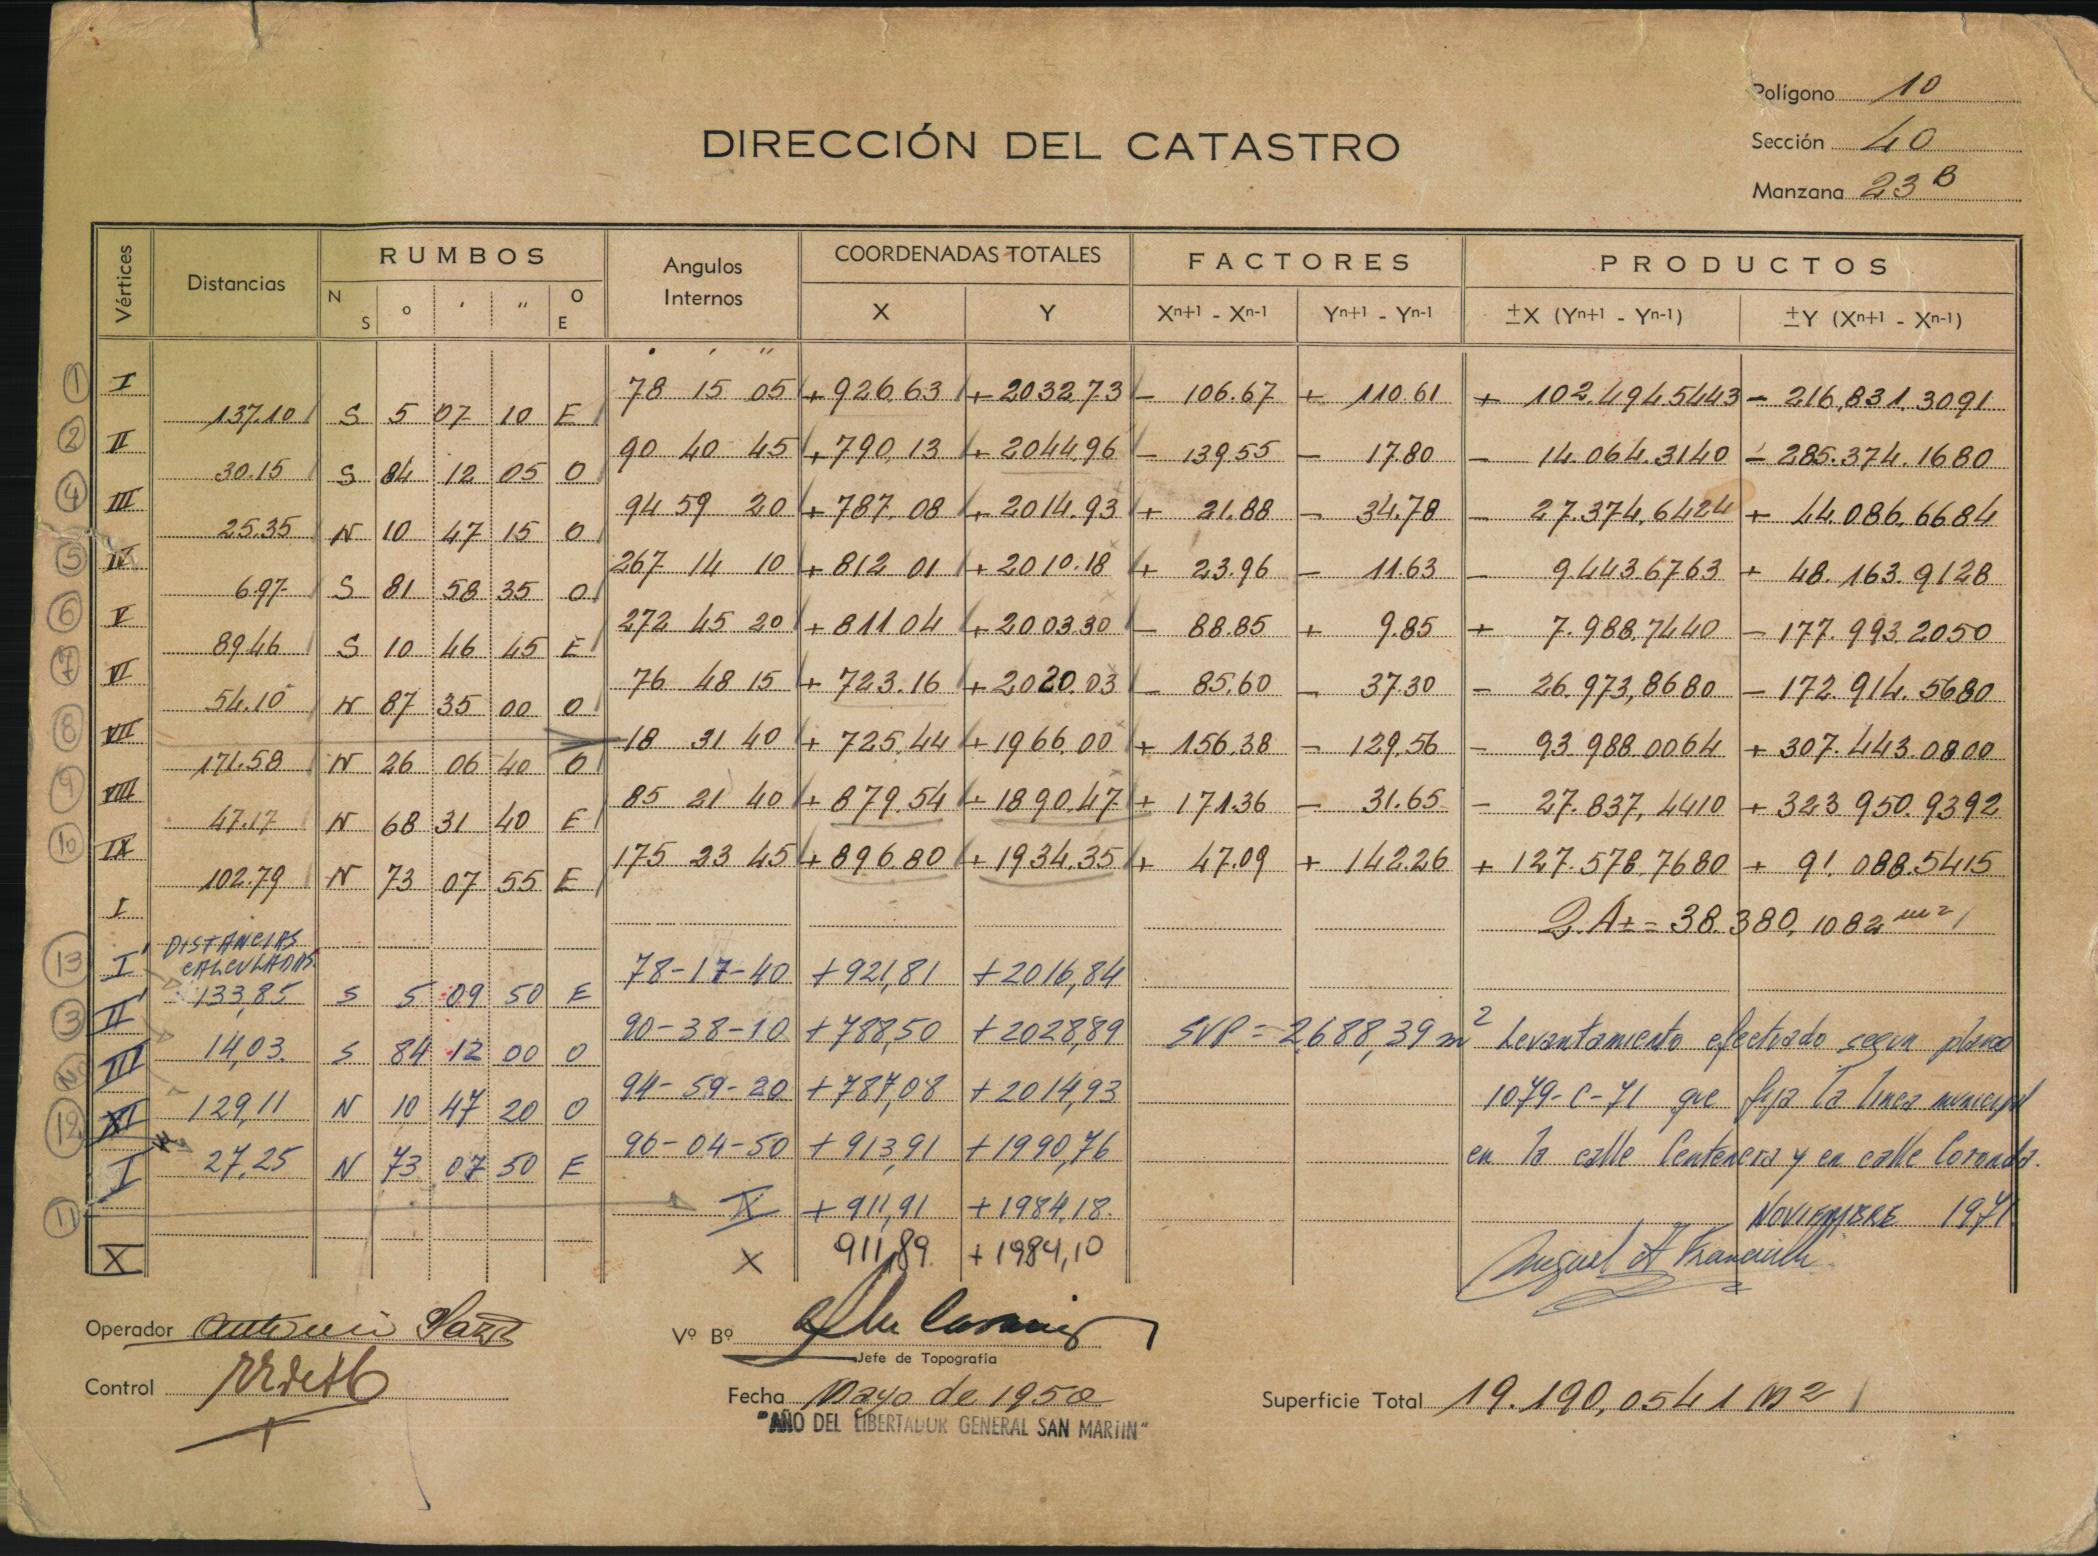 Polígono 10
DIRECCIÓN DEL CATASTRO
Sección 40
Manzana 23 B
Vértices Distancias RUMBOS Angulos Internos COORDENADAS TOTALES FACTORES PRODUCTOS
N S ° ' " O E X Y Xn+1 - Xn-1 Yn+1 - Yn-1 ±X (Yn+1 - Yn-1) ±Y (Xn+1 - Xn-1)
° ' "
1 I 78 15 05 +926,63 +2032,73 - 106.67 + 110.61 + 102.494,5443 - 216,831,3091
137.10 S 5 07 10 E
2 II 90 40 45 +790,13 +2044,96 - 139.55 - 17.80 - 14.064.3140 - 285.374.1680
30.15 S 84 12 05 O
4 III 94 59 20 +787,08 +2014.93 + 21.88 - 34.78 - 27.374,6424 + 44.086,6684
25.35 N 10 47 15 O
5 IV 267 14 10 +812 01 +2010.18 + 23.96 - 11.63 - 9443.6763 + 48.163.9128
6.97 S 81 58 35 O
6 V 272 45 20 +811 04 +2003.30 - 88.85 + 9.85 + 7.988,7440 - 177.993.2050
89.46 S 10 46 45 E
7 VI 76 48 15 +723.16 +2020.03 - 85.60 - 37.30 - 26.973,8680 - 172.914.5680
54.10 N 87 35 00 O
8 VII 18 31 40 +725,44 +1966,00 + 156.38 - 129.56 - 93 988.0064 + 307.443.0800
171.58 N 26 06 40 O
9 VIII 85 21 40 +879.54 +1890.47 + 171.36 - 31.65 - 27.837,4410 + 323 950.9392
47.17 N 68 31 40 E
10 IX 175 23 45 +896.80 +1934.35 + 47.09 + 142.26 + 127.578,7680 + 91.088.5415
102.79 N 73 07 55 E
I 2A± = 38.380,1082 m2
DISTANCIAS CALCULADAS
13 I' 78-17-40 +921,81 +2016,84
133,85 S 5 09 50 E
3 II' 90-38-10 +788,50 +2028,89 SVP = 2.688,39 m2 Levantamiento efectuado segun plano
14,03 S 84 12 00 O
III 94-59-20 +787,08 +2014,93 1079-C-71 que fija la linea municipal
129,11 N 10 47 20 O
12 XI 96-04-50 +913,91 +1990,76 en la calle Centenera y en calle Coronda.
27,25 N 73 07 50 E
I'
11 X +911,91 +1984,18. NOVIEMBRE 1971
X X 911,89 +1984,10
Operador
Vº Bº
Jefe de Topografía
Control
Fecha Mayo de 1950
"AÑO DEL LIBERTADOR GENERAL SAN MARTIN"
Superficie Total 19.190,0541 m2